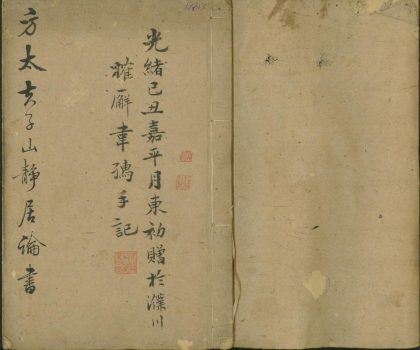 光緒己丑嘉平月東初贈於濮川
廨韋手記
方太夫子山靜居論書